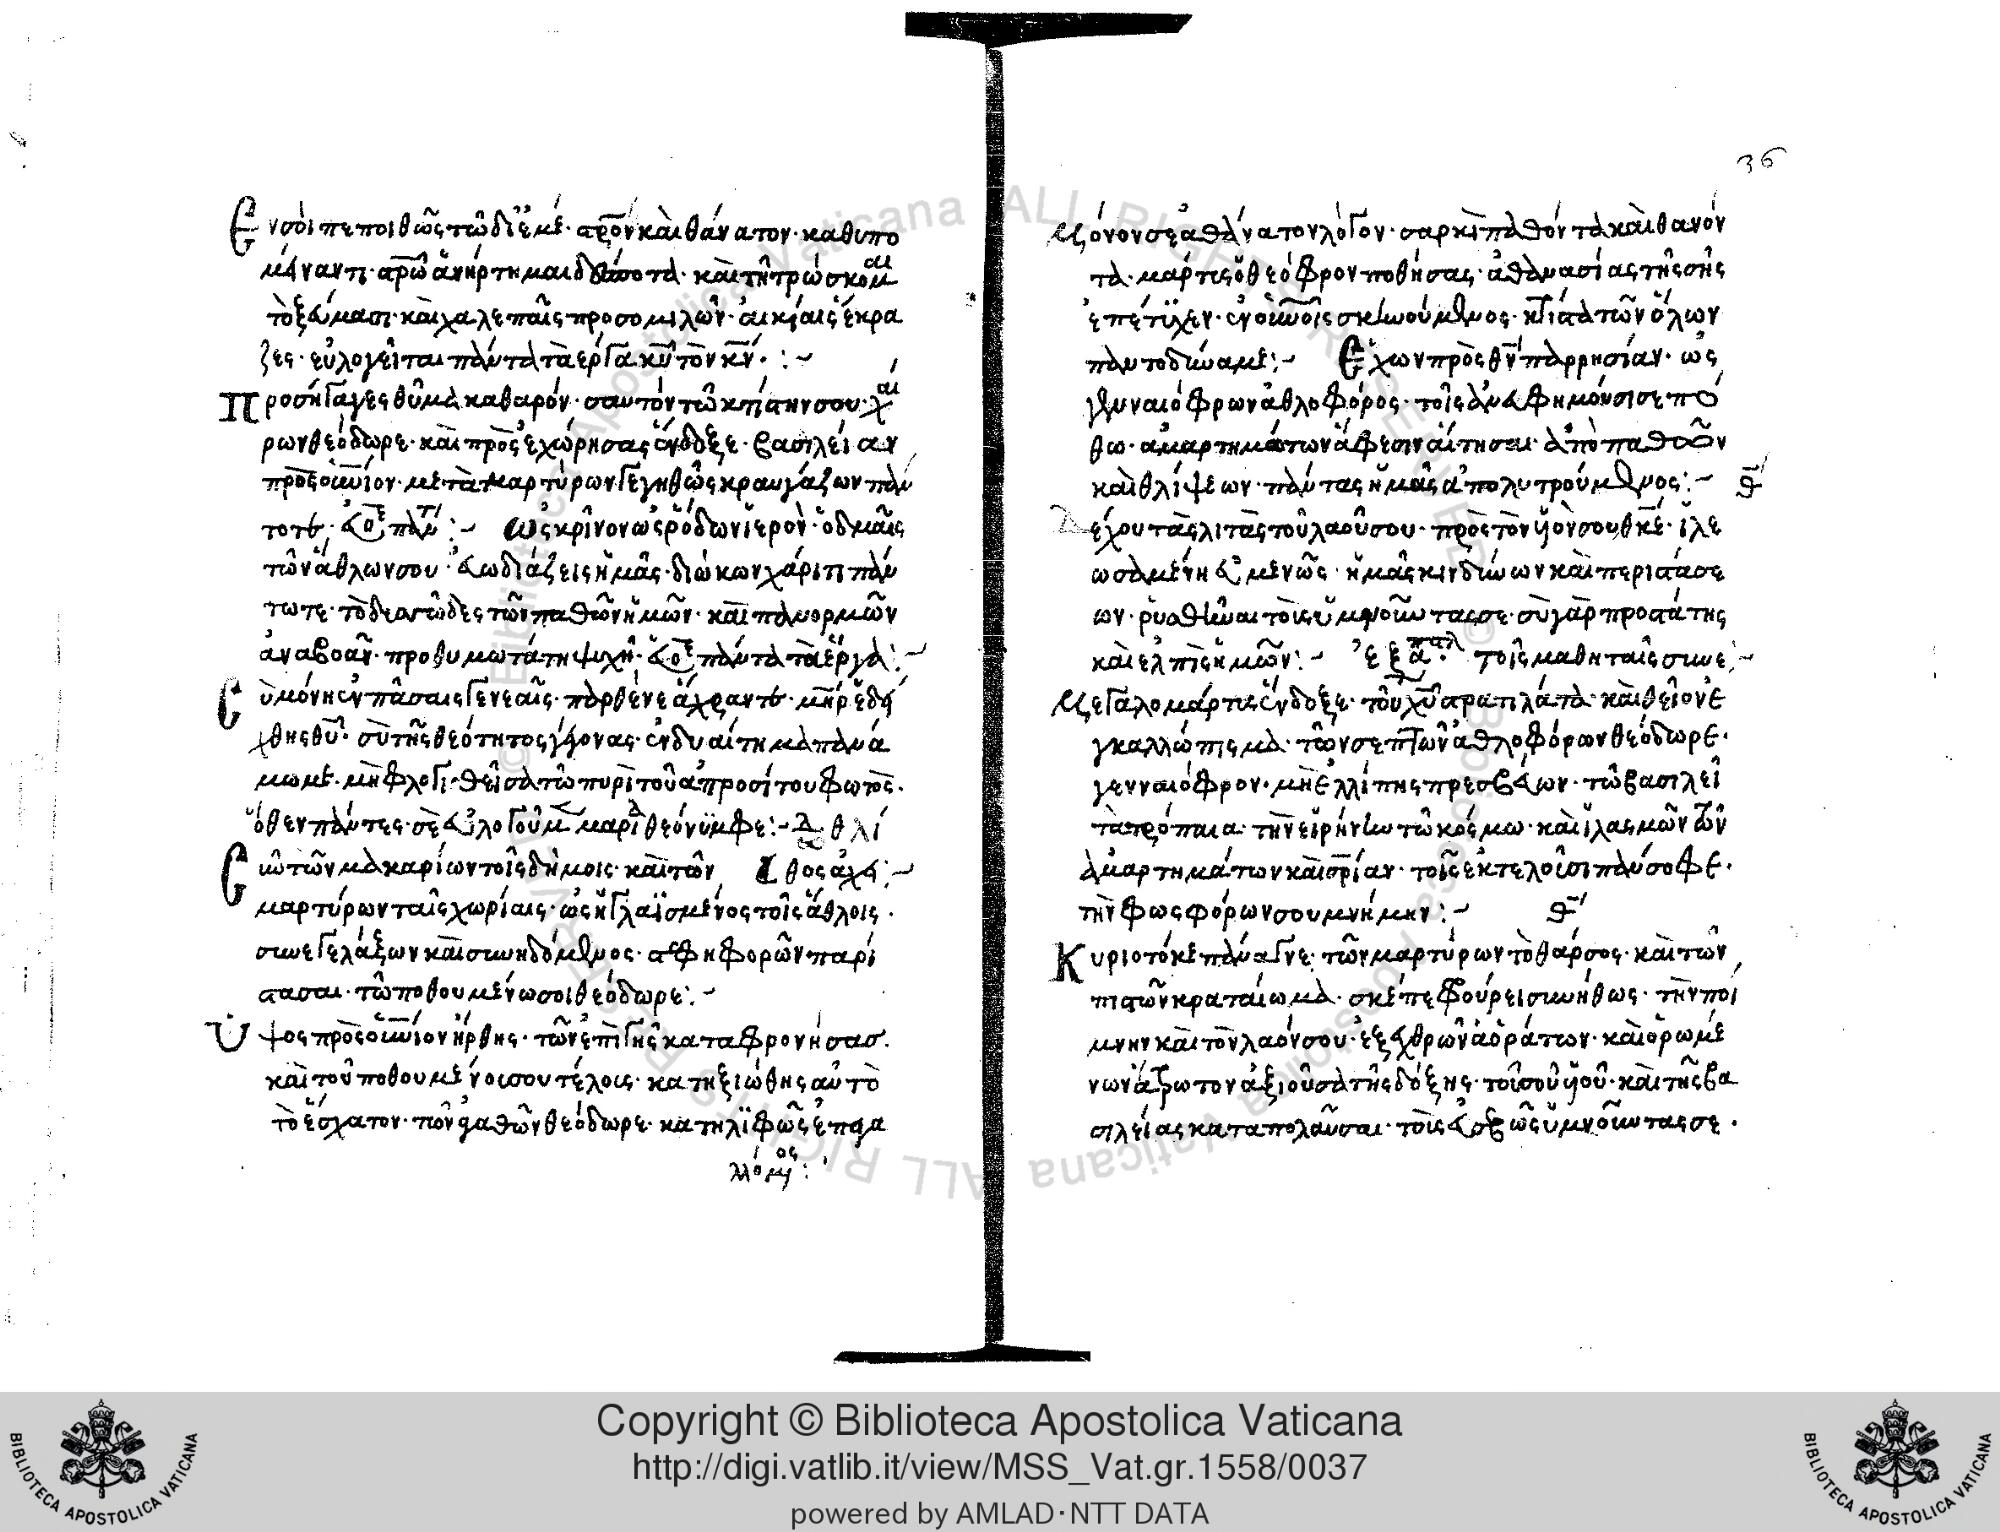 Ἐν σοὶ πεποιθὼς τῶ δι ἐμὲ στρον καὶ θάνατον καθυπο
μείναντι στρῶ ἀνήρτημαι δέσποτα καὶ τιτρώσκομαι
τοξεύμασι καὶ χαλεπαῖς προσομιλῶν αἰκίαις ἔκρα
ζες εὐλογεῖται πάντα τὰ ἔργα κυ τὸν κν
Προσήγαγες θῦμα καθαρόν σαυτὸν τῶ κτίστη σου χαί
ρων θεόδωρε καὶ πρὸς ἐχώρησας ἔνδοξε βασιλείαν
πρὸς οὐνιον μετὰ μαρτύρων γεγηθὼς κραυγάζων πάν
τοτε εὐ πάντ ὡς κρίνον ὡς ῥόδων ἱερὸν ὀδμαῖς
τῶν ἄθλων σου εὐωδιάζεις ἡμᾶς διώκων χάριτι πάν
τωτε τὸ δεσῶδες τῶν παθῶν ἡμῶν καὶ πᾶν ὁρμῶν
ἀναβοᾶν προθυμωτάτη ψυχῆ εὐ πάντα τὰ ἔργα
Σὺ μόνη ἐν πάσαις γενεαῖς παρθένε ἄχραντε μηρ ἐδεί
χθης θυ σὺ τῆς θεότητος γέγονας ἐνδυαίτημα πανά
μωμε μὴ φλογιθεῖσα τῶ πυρὶ τοῦ ἀπροσίτου φωτός
ὅθεν πάντες σὲ εὐλογοῦμεν μαρία θεόνυμφε θλί
Σὺν τῶν μακαρίων τοῖς δήμοις καὶ τῶν
μαρτύρων ταῖς χωρίαις ὡς ἠγλαϊσμένος τοῖς ἄθλοις
συνεγελάζων καὶ συνηδόμενος στεφηφορῶν παρί
στασαι τῶ ποθουμένω σοι θεόδωρε
Ὕψος πρὸς οὐνιον ἤρθης τῶν ἐπὶ γῆς καταφρονήσασ
καὶ τοῦ ποθουμένοι σου τέλοις κατηξιώθης αὐτὸ
τὸ ἔσχατον τῶν ἀγαθῶν θεόδωρε κατηλιφὼς ἐπαγα
λλόμενος
36
Μόνον σε ἀθάνατον λόγον σαρκὶ παθόντα καὶ θανόν
τα μάρτυς ὁ θεόφρον ποθήσας ἀθανασίας τῆς σῆς
ἐπέτυχεν ἐν οὐνοῖς σκηνούμενος κτίστα τῶν ὅλων
παντοδύναμε Ἔχων πρὸς θν παρρησίαν ὡς
γενναιόφρων ἀθλοφόρος τοῖς ἀνευφημοῦσι σε πό
θω ἁμαρτημάτων ἄφεσιν αἴτησαι ἀπὸ παθῶν
καὶ θλίψεων πάντας ἡμᾶς ἀπολυτρούμενος θ
Δέχου τὰς λιτὰς τοῦ λαοῦ σου πρὸς τὸν υἱὸν σου θκε ἵλε
ωσαμένη εὐμενῶς ἡμᾶς κινδύνων καὶ περιστάσε
ων ῥυσθῆναι τοὶς ὑμνοῦντας σε σὺ γὰρ προστάτης
καὶ ἐλπὶς ἡμῶν ἐξα τοῖς μαθηταῖς συνε
Μεγαλομάρτυς ἔνδοξε τοῦ χυ στρατιλάτα καὶ θεῖον ἐ
γκαλλώπισμα τῶν σεπτῶν ἀθλοφόρων θεόδωρε
γενναιόφρον μὴ ἐλλίπης πρεσβεύων τῶ βασιλεῖ
τὰ τρόπαια τὴν εἰρήνην τῶ κόσμω καὶ ἱλασμῶν τῶν
ἁμαρτημάτων καὶ σρίαν τοῖς ἐκτελοῦσι πάνσοφε
τὴν φωσφόρων σου μνήμην θ
Κυριοτόκε πάναγνε τῶν μαρτύρων τὸ θάρσος καὶ τῶν
πιστῶν κραταίωμα σκέπε φρούρει συνήθως τὴν ποί
μνην καὶ τὸν λαόν σου ἐξ ἐχθρῶν ἀοράτων καὶ ὁρωμέ
νων ἄτρωτον ἀξιοῦσα τῆς δόξης τοῦ σοῦ υἱοῦ καὶ τῆς βα
σιλείας καταπολαῦσαι τοὶς εὐσεβῶς ὑμνοῦντας σε
Copyright © Biblioteca Apostolica Vaticana
http://digi.vatlib.it/view/MSS_Vat.gr.1558/0037
powered by AMLAD·NTT DATA